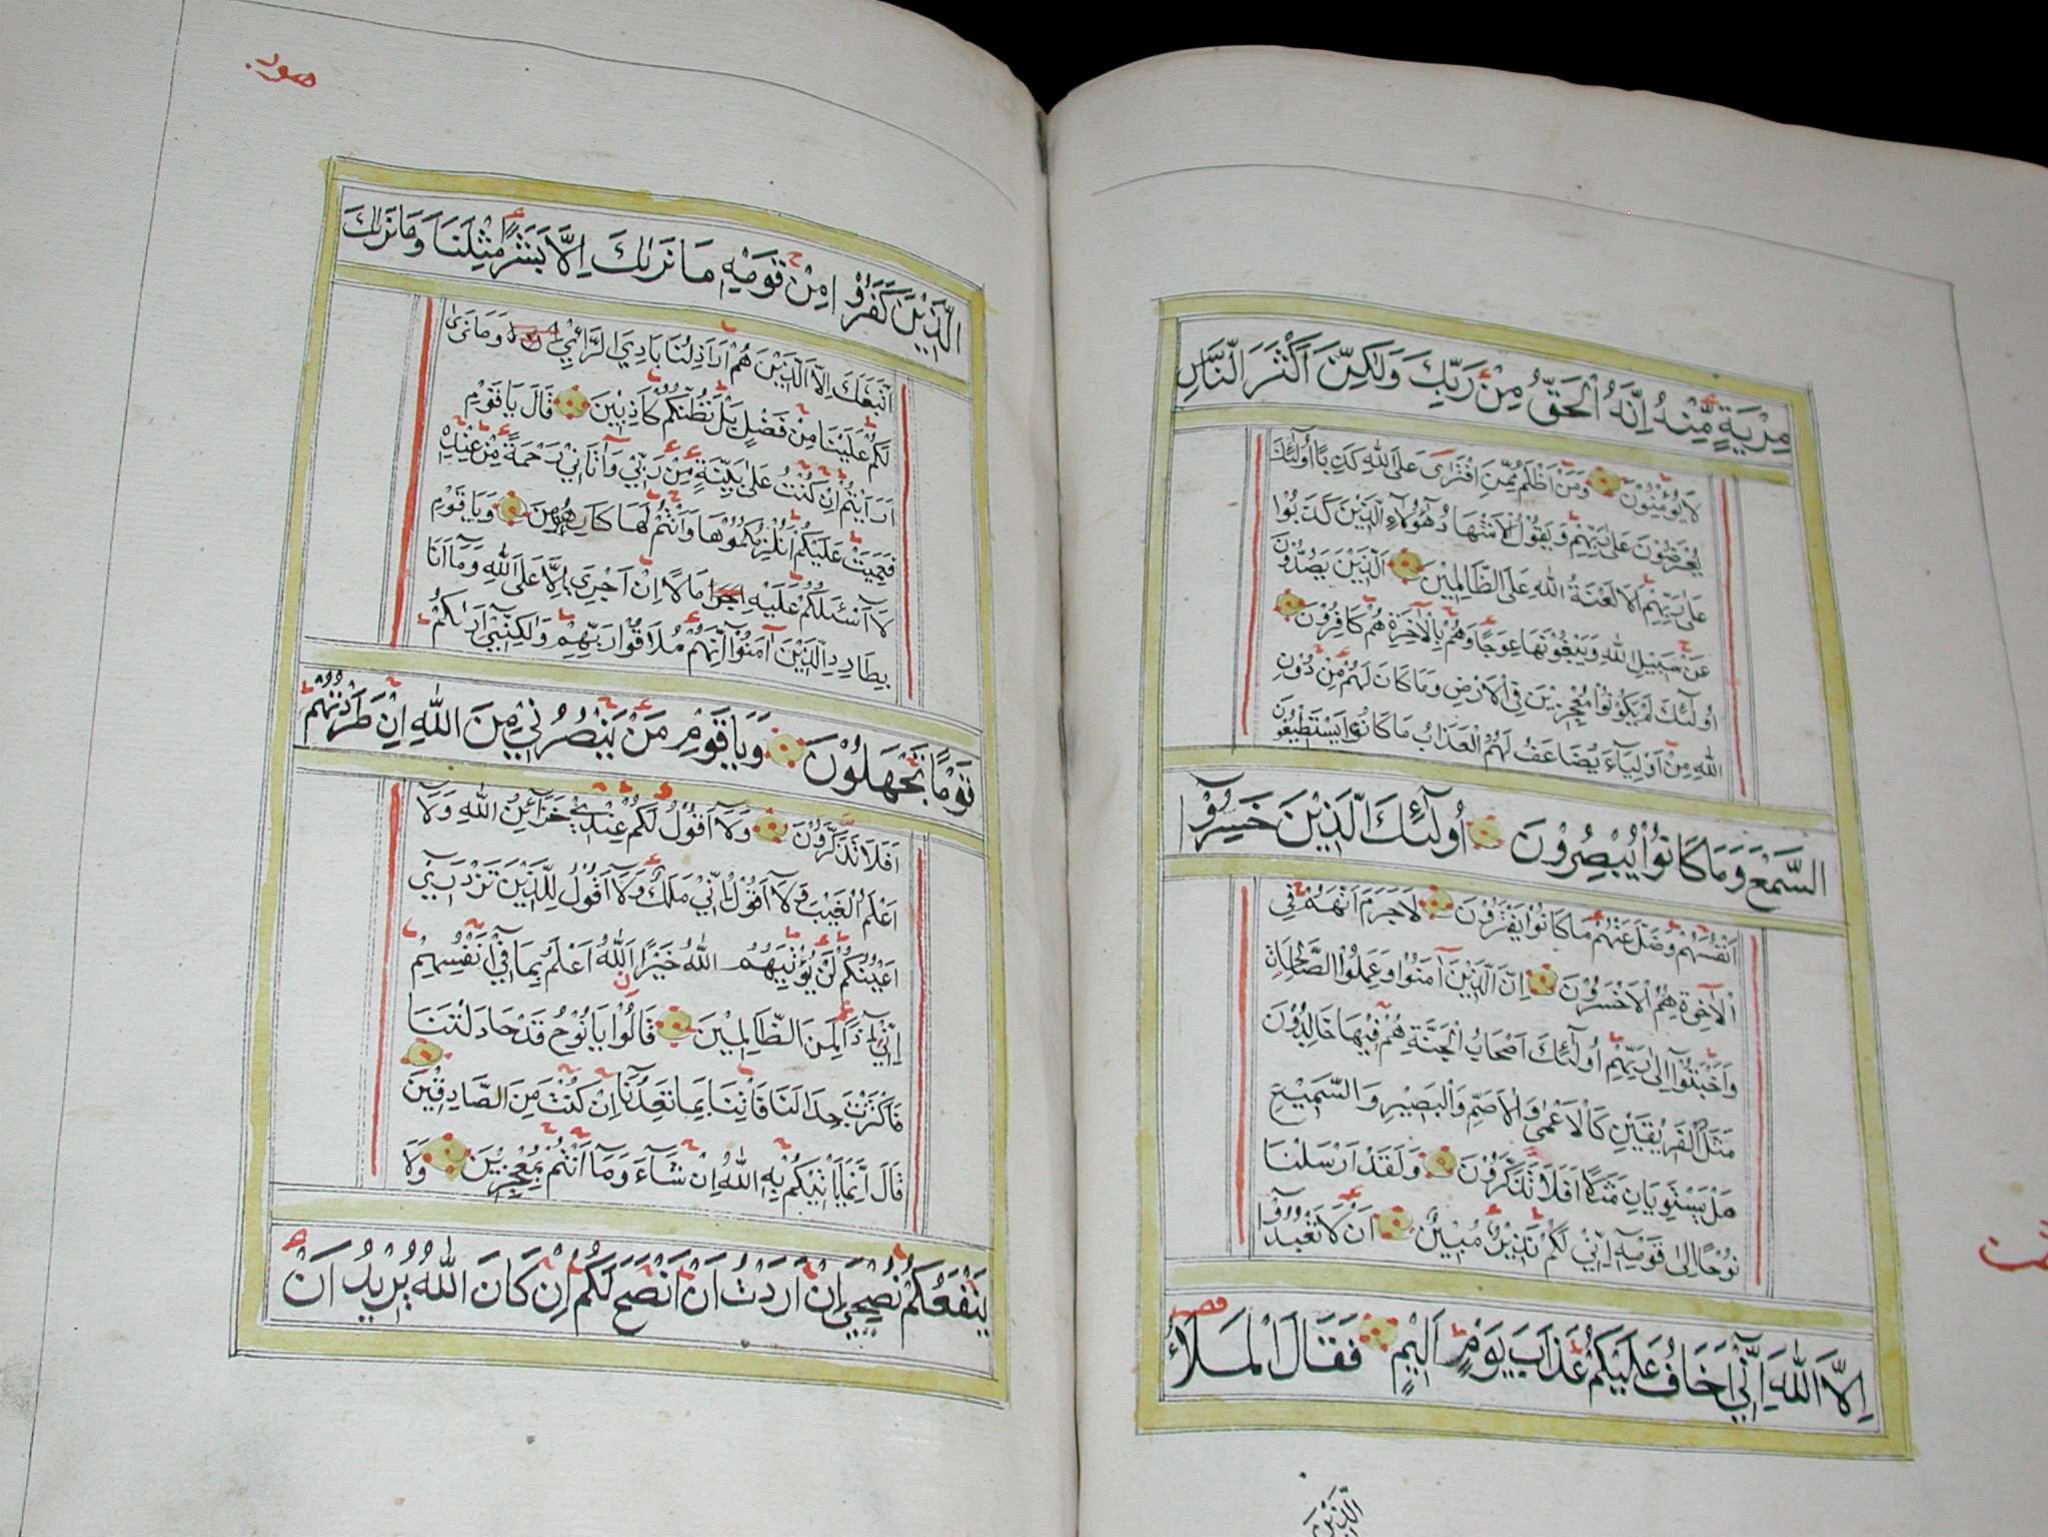 مِرْيَةٍ مِّنْهُ اِنَّهُ الْحَقُّ مِنْ رَبِّكَ وَلٰكِنَّ اَكْثَرَ النَّاسِ
لَا يُؤْمِنُونَ وَمَنْ اَظْلَمُ مِمَّنِ افْتَرٰى عَلَى اللّٰهِ كَذِبًا اُولٰٓئِكَ
يُعْرَضُوْنَ عَلٰى رَبِّهِمْ وَيَقُوْلُ الْاَشْهَادُ هٰٓؤُلَآءِ الَّذِيْنَ كَذَبُوْا
عَلٰى رَبِّهِمْ اَلَا لَعْنَةُ اللّٰهِ عَلَى الظَّالِمِيْنَ اَلَّذِيْنَ يَصُدُّوْنَ
عَنْ سَبِيْلِ اللّٰهِ وَيَبْغُوْنَهَا عِوَجًا وَهُمْ بِالْاٰخِرَةِ هُمْ كَافِرُوْنَ
اُولٰٓئِكَ لَمْ يَكُوْنُوْا مُعْجِزِيْنَ فِى الْاَرْضِ وَمَا كَانَ لَهُمْ مِنْ دُوْنِ
اللّٰهِ مِنْ اَوْلِيَآءَ يُضَاعَفُ لَهُمُ الْعَذَابُ مَا كَانُوْا يَسْتَطِيْعُوْنَ
السَّمْعَ وَمَا كَانُوْا يُبْصِرُوْنَ اُولٰٓئِكَ الَّذِيْنَ خَسِرُوْٓا
اَنْفُسَهُمْ وَضَلَّ عَنْهُمْ مَا كَانُوْا يَفْتَرُوْنَ لَا جَرَمَ اَنَّهُمْ فِي
الْاٰخِرَةِ هُمُ الْاَخْسَرُوْنَ اِنَّ الَّذِيْنَ اٰمَنُوْا وَعَمِلُوا الصَّالِحَاتِ
وَاَخْبَتُوْٓا اِلٰى رَبِّهِمْ اُولٰٓئِكَ اَصْحَابُ الْجَنَّةِ هُمْ فِيْهَا خَالِدُوْنَ
مَثَلُ الْفَرِيْقَيْنِ كَالْاَعْمٰى وَالْاَصَمِّ وَالْبَصِيْرِ وَالسَّمِيْعِ
هَلْ يَسْتَوِيَانِ مَثَلًا اَفَلَا تَذَكَّرُوْنَ وَلَقَدْ اَرْسَلْنَا
نُوْحًا اِلٰى قَوْمِهٓ اِنِّيْ لَكُمْ نَذِيْرٌ مُبِيْنٌ اَنْ لَا تَعْبُدُوْٓا
اِلَّا اللّٰهَ اِنِّيْٓ اَخَافُ عَلَيْكُمْ عَذَابَ يَوْمٍ اَلِيْمٍ فَقَالَ الْمَلَاُ
الَّذِيْنَ
هود
الَّذِيْنَ كَفَرُوْا مِنْ قَوْمِهٖ مَا نَرٰىكَ اِلَّا بَشَرًا مِثْلَنَا وَمَا نَرٰىكَ
اتَّبَعَكَ اِلَّا الَّذِيْنَ هُمْ اَرَاذِلُنَا بَادِيَ الرَّأْيِ وَمَا نَرٰى
لَكُمْ عَلَيْنَا مِنْ فَضْلٍ بَلْ نَظُنُّكُمْ كَاذِبِيْنَ قَالَ يَا قَوْمِ
اَرَاَيْتُمْ اِنْ كُنْتُ عَلٰى بَيِّنَةٍ مِنْ رَبِّيْ وَاٰتَانِيْ رَحْمَةً مِنْ عِنْدِهٖ
فَعُمِّيَتْ عَلَيْكُمْ اَنُلْزِمُكُمُوْهَا وَاَنْتُمْ لَهَا كَارِهُوْنَ وَيَا قَوْمِ
لَآ اَسْئَلُكُمْ عَلَيْهِ مَالًا اِنْ اَجْرِيَ اِلَّا عَلَى اللّٰهِ وَمَآ اَنَا
بِطَارِدِ الَّذِيْنَ اٰمَنُوْٓا اِنَّهُمْ مُلَاقُوْا رَبِّهِمْ وَلٰكِنِّيْٓ اَرٰىكُمْ
قَوْمًا تَجْهَلُوْنَ وَيَا قَوْمِ مَنْ يَنْصُرُنِيْ مِنَ اللّٰهِ اِنْ طَرَدْتُهُمْ
اَفَلَا تَذَكَّرُوْنَ وَلَآ اَقُوْلُ لَكُمْ عِنْدِيْ خَزَآئِنُ اللّٰهِ وَلَا
اَعْلَمُ الْغَيْبَ وَلَآ اَقُوْلُ اِنِّيْ مَلَكٌ وَلَآ اَقُوْلُ لِلَّذِيْنَ تَزْدَرِيْٓ
اَعْيُنُكُمْ لَنْ يُؤْتِيَهُمُ اللّٰهُ خَيْرًا اَللّٰهُ اَعْلَمُ بِمَا فِيْٓ اَنْفُسِهِمْ
اِنِّيْٓ اِذًا لَمِنَ الظَّالِمِيْنَ قَالُوْا يَا نُوْحُ قَدْ جَادَلْتَنَا
فَاَكْثَرْتَ جِدَالَنَا فَأْتِنَا بِمَا تَعِدُنَآ اِنْ كُنْتَ مِنَ الصَّادِقِيْنَ
قَالَ اِنَّمَا يَأْتِيْكُمْ بِهِ اللّٰهُ اِنْ شَآءَ وَمَآ اَنْتُمْ بِمُعْجِزِيْنَ وَلَا
يَنْفَعُكُمْ نُصْحِيْٓ اِنْ اَرَدْتُ اَنْ اَنْصَحَ لَكُمْ اِنْ كَانَ اللّٰهُ يُرِيْدُ اَنْ